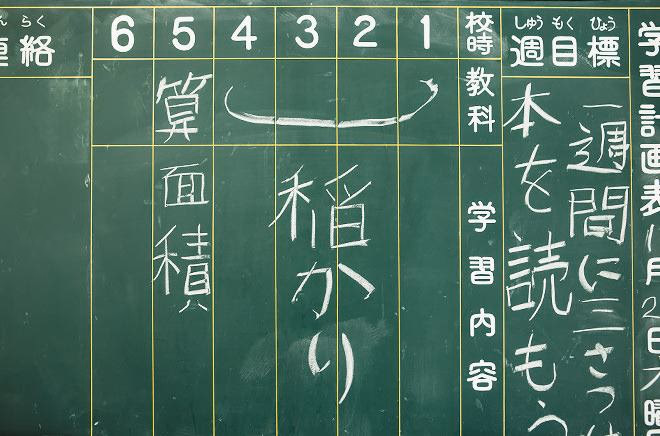 学習計画表11月2日火曜日
しゅうもくひょう
週目標
一週間に三さつ
本を読もう
校時
教科
学習内容
1
2
3
4
5
6
稲かり
算
面積
らく
絡